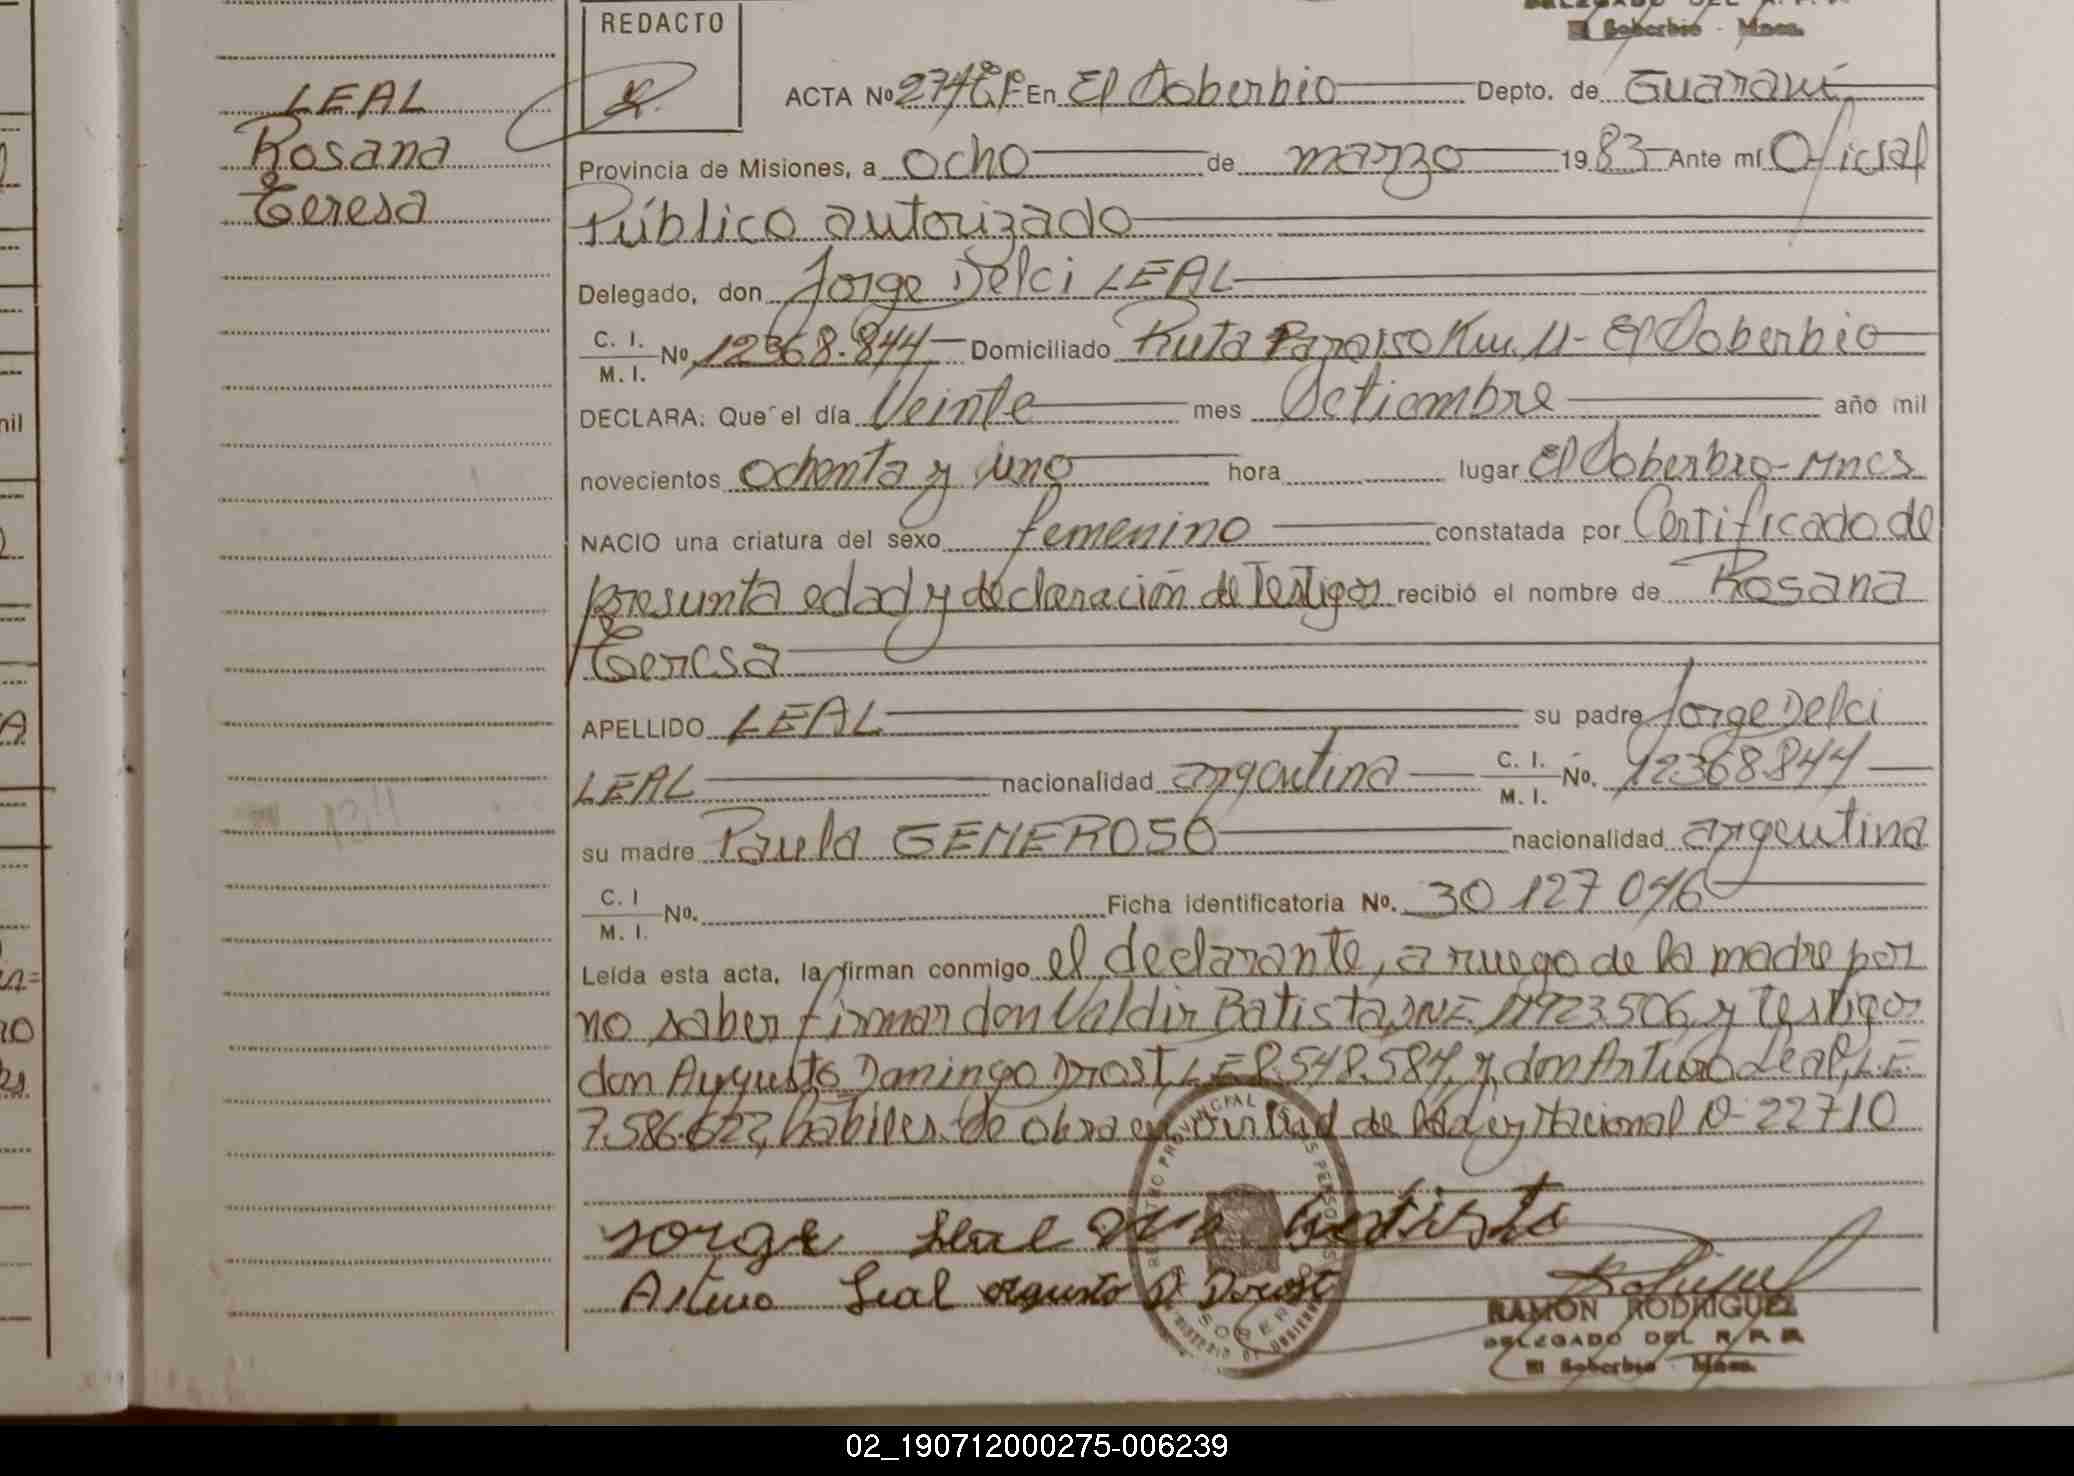 REDACTO
DELEGADO DEL R. P. P.
El Soberbio - Mnes.
LEAL
Rosana
Teresa
ACTA Nº 274 En El Soberbio Depto. de Guaraní
Provincia de Misiones, a ocho de marzo 1983 Ante mí Oficial
Público autorizado
Delegado, don Jorge Delci LEAL
C. I.
M. I. Nº 12368.844 Domiciliado Ruta Paraiso Km. 11 - El Soberbio
DECLARA: Que el día Veinte mes Setiembre año mil
novecientos ochenta y uno hora lugar El Soberbio - Mnes
NACIO una criatura del sexo femenino constatada por Certificado de
presunta edad y declaración de Testigos recibió el nombre de Rosana
Teresa
APELLIDO LEAL su padre Jorge Delci
LEAL nacionalidad argentina C. I.
M. I. No. 12.368.844
su madre Paula GENEROSO nacionalidad argentina
C. I
M. I. No. Ficha identificatoria No. 30 127 046
Leída esta acta, la firman conmigo el declarante, a ruego de la madre por
no saber firmar don Valdir Batista, DNI. 17.923.506, y Testigos
don Augusto Domingo Drost, L E 8.548.584, y don Arturo Leal, L.E.
7.586.622, hábiles de obra en virtud de la Ley Nacional Nº 22710
Jorge Leal Batista
Arturo Leal Augusto D Drost
RAMON RODRIGUEZ
DELEGADO DEL R. P. P.
El Soberbio - Mnes.
02_190712000275-006239